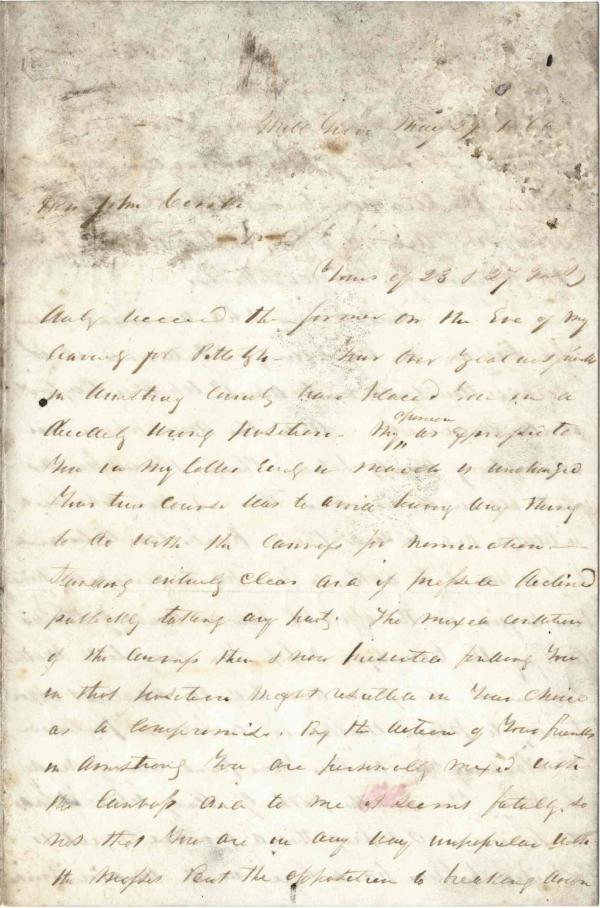 Mill Grove May 29 1866
Hon John Covode
Dr Sir
Yours of 23 & 27 Inst
duly received the former on the Eve of my
leaving for Pittsbgh - Your over zealous friends
in Armstrong County have placed You in a
decidedly wrong position - My opinion as expressed to
You in my letter Early in March is unchanged
Your true course was to avoid having any thing
to do with the canvass for nomination -
Standing entirely clear and if pressed declined
publickly taking any part. The mixed condition
of the canvass then & now presented finding You
in that position might resulted in Your choice
as a Compromise. By the action of Your friends
in Armstrong You are personally mixed with
the Canvass and to me it seems fatally so
not that You are in any way unpopular with
the Masses But the opposition to breaking down